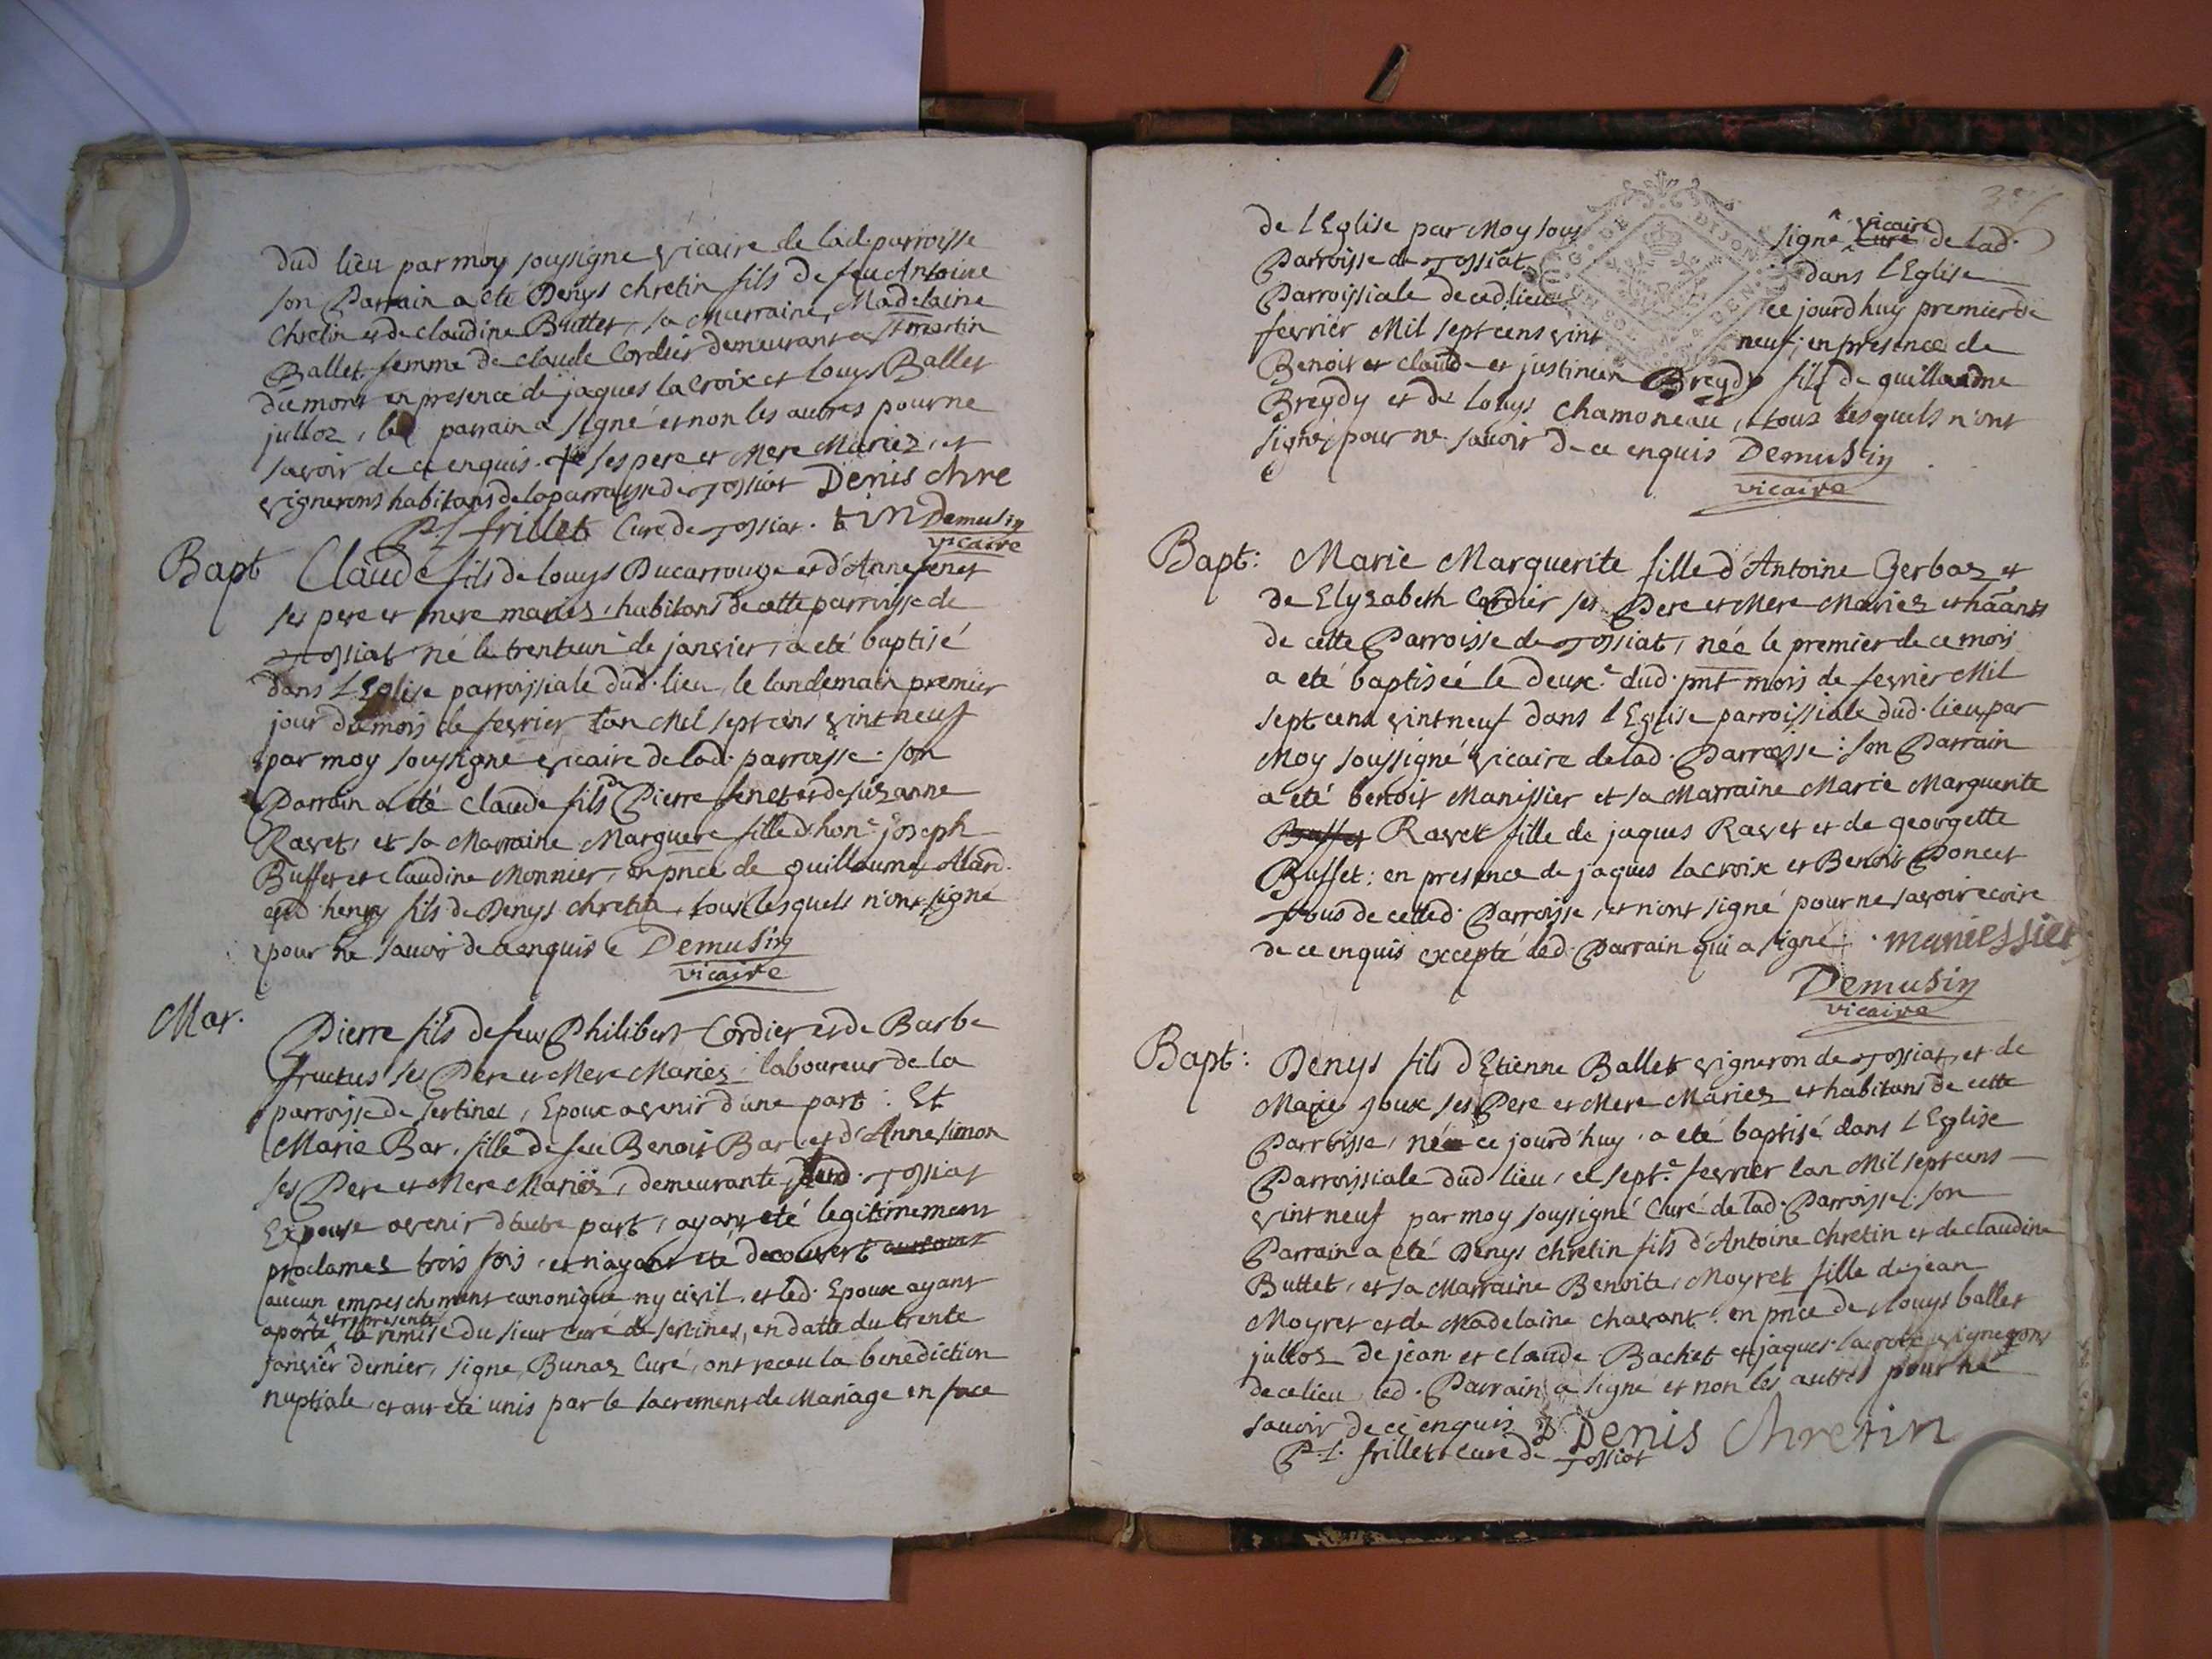 dud lieu par moy soussigne vicaire de lad. parroisse
son Parrain a eté Denys chretin fils de feu Antoine
chretin et de claudine Buttet, sa Marraine, Madelaine
Ballet femme de claude Cordier demeurant a St martin
du mont en presence de jaques la croix et louys Ballet
julloz, le parrain a signé et non les autres pour ne
savoir de ce enquis. ses pere et Mere Mariez, et
vignerons habitans de la parroisse de Jossiat Denis Chre
P. f frillet Curé de Jossiat. tin Demusin
vicaire
Bapt Claude fils de louys Ducarrouge et d'Anne fenet
ses pere et mere mariez, habitans de cette parroisse de
Jossiat né le trenteun.e de janvier, a eté baptisé
dans l'Eglise parroissiale dud. lieu, le landemain premier
jour du mois de fevrier lan Mil sept cens vint neuf
par moy soussigne vicaire de lad. parroisse. son
Parrain a été claude fils de Pierre fenet et de suzanne
Ravet, et sa Marraine Marguere fille d'hon.e joseph
Buffet et claudine Monnier, en pnce de guillaume Alard
et d'henry fils de Denys chretin, tous lesquels n'ont signé
pour ne savoir de ce enquis Demusin
vicaire
Mar.
Pierre fils de feu Philibert Cordier et de Barbe
fructus ses Pere et Mere Mariez, laboureur de la
parroisse de sertines, Epoux avenir d'une part. Et
Marie Bar. fille de feu Benoit Bar. et d'Anne simon
ses Pere et Mere Mariez, demeurante aud. Jossiat
Epouse avenir d'autre part, ayant eté legitimement
proclamez trois fois, et n'ayant eté decouvert aucune
aucun empeschement canonique ny civil. et led. Epoux ayant
^ et represente
aporté la remise du sieur curé de sertines, en datte du trente
janvier dernier, signe, Bunaz Curé, ont receu la benediction
nuptiale et ont eté unis par le sacrement de Mariage en face
de l'Eglise par Moy sous signé ^ vicaire Curé de lad.
Parroisse de Jossiat dans l'Eglise
Parroissiale de ced. lieu ce jourd'huy premier de
fevrier Mil sept cens vint neuf, en presence de
Benoit et claude et justinien Breydy fils de guillaume
Breydy et de louys chamoneau, tous lesquels n'ont
signé pour ne savoir de ce enquis Demustin
vicaire
Bapt: Marie Marguerite fille d'Antoine Gerbaz et
de Elyzabeth Cordier ses Pere et Mere Mariez et haants
de cette Parroisse de Jossiat, née le premier de ce mois
a eté baptisée le deux.e dud. pnt mois de fevrier Mil
sept cens vint neuf dans l'Eglise parroissiale dud. lieu par
Moy soussigné vicaire de lad. Parroisse: son Parrain
a eté benoit Manissier et sa Marraine Marie Marguerite
Buffet Ravet fille de jaques Ravet et de georgette
Buffet: en presence de jaques lacroix et Benoit Poncet
tous de cetted. Parroisse, et n'ont signé pour ne savoir ecrire
de ce enquis excepté led. Parrain qui a signé. maniessier
Demusin
vicaire
Bapt: Denys fils d'Etienne Ballet vigneron de Jossiat, et de
Marie joux ses Pere et Mere Mariez et habitans de cette
Parroisse, né ce jourd'huy, a eté baptisé dans l'Eglise
Parroissiale dud. lieu, ce sept.e fevrier lan Mil sept cens
vint neuf par moy soussigné Curé de lad. Parroisse. son
Parrain a eté Denys chretin fils d'Antoine chretin et de claudine
Buttet, et sa Marraine Benoite, Moyret fille de jean
Moyret et de Madelaine chavant. en pnce de louys ballet
julloz de jean et claude Bachet et jaques lacroix vignerons
de ce lieu led. Parrain a signé et non les autres pour ne
savoir de ce enquis Denis Chretin
P. f. frillet Curé de Jossiat